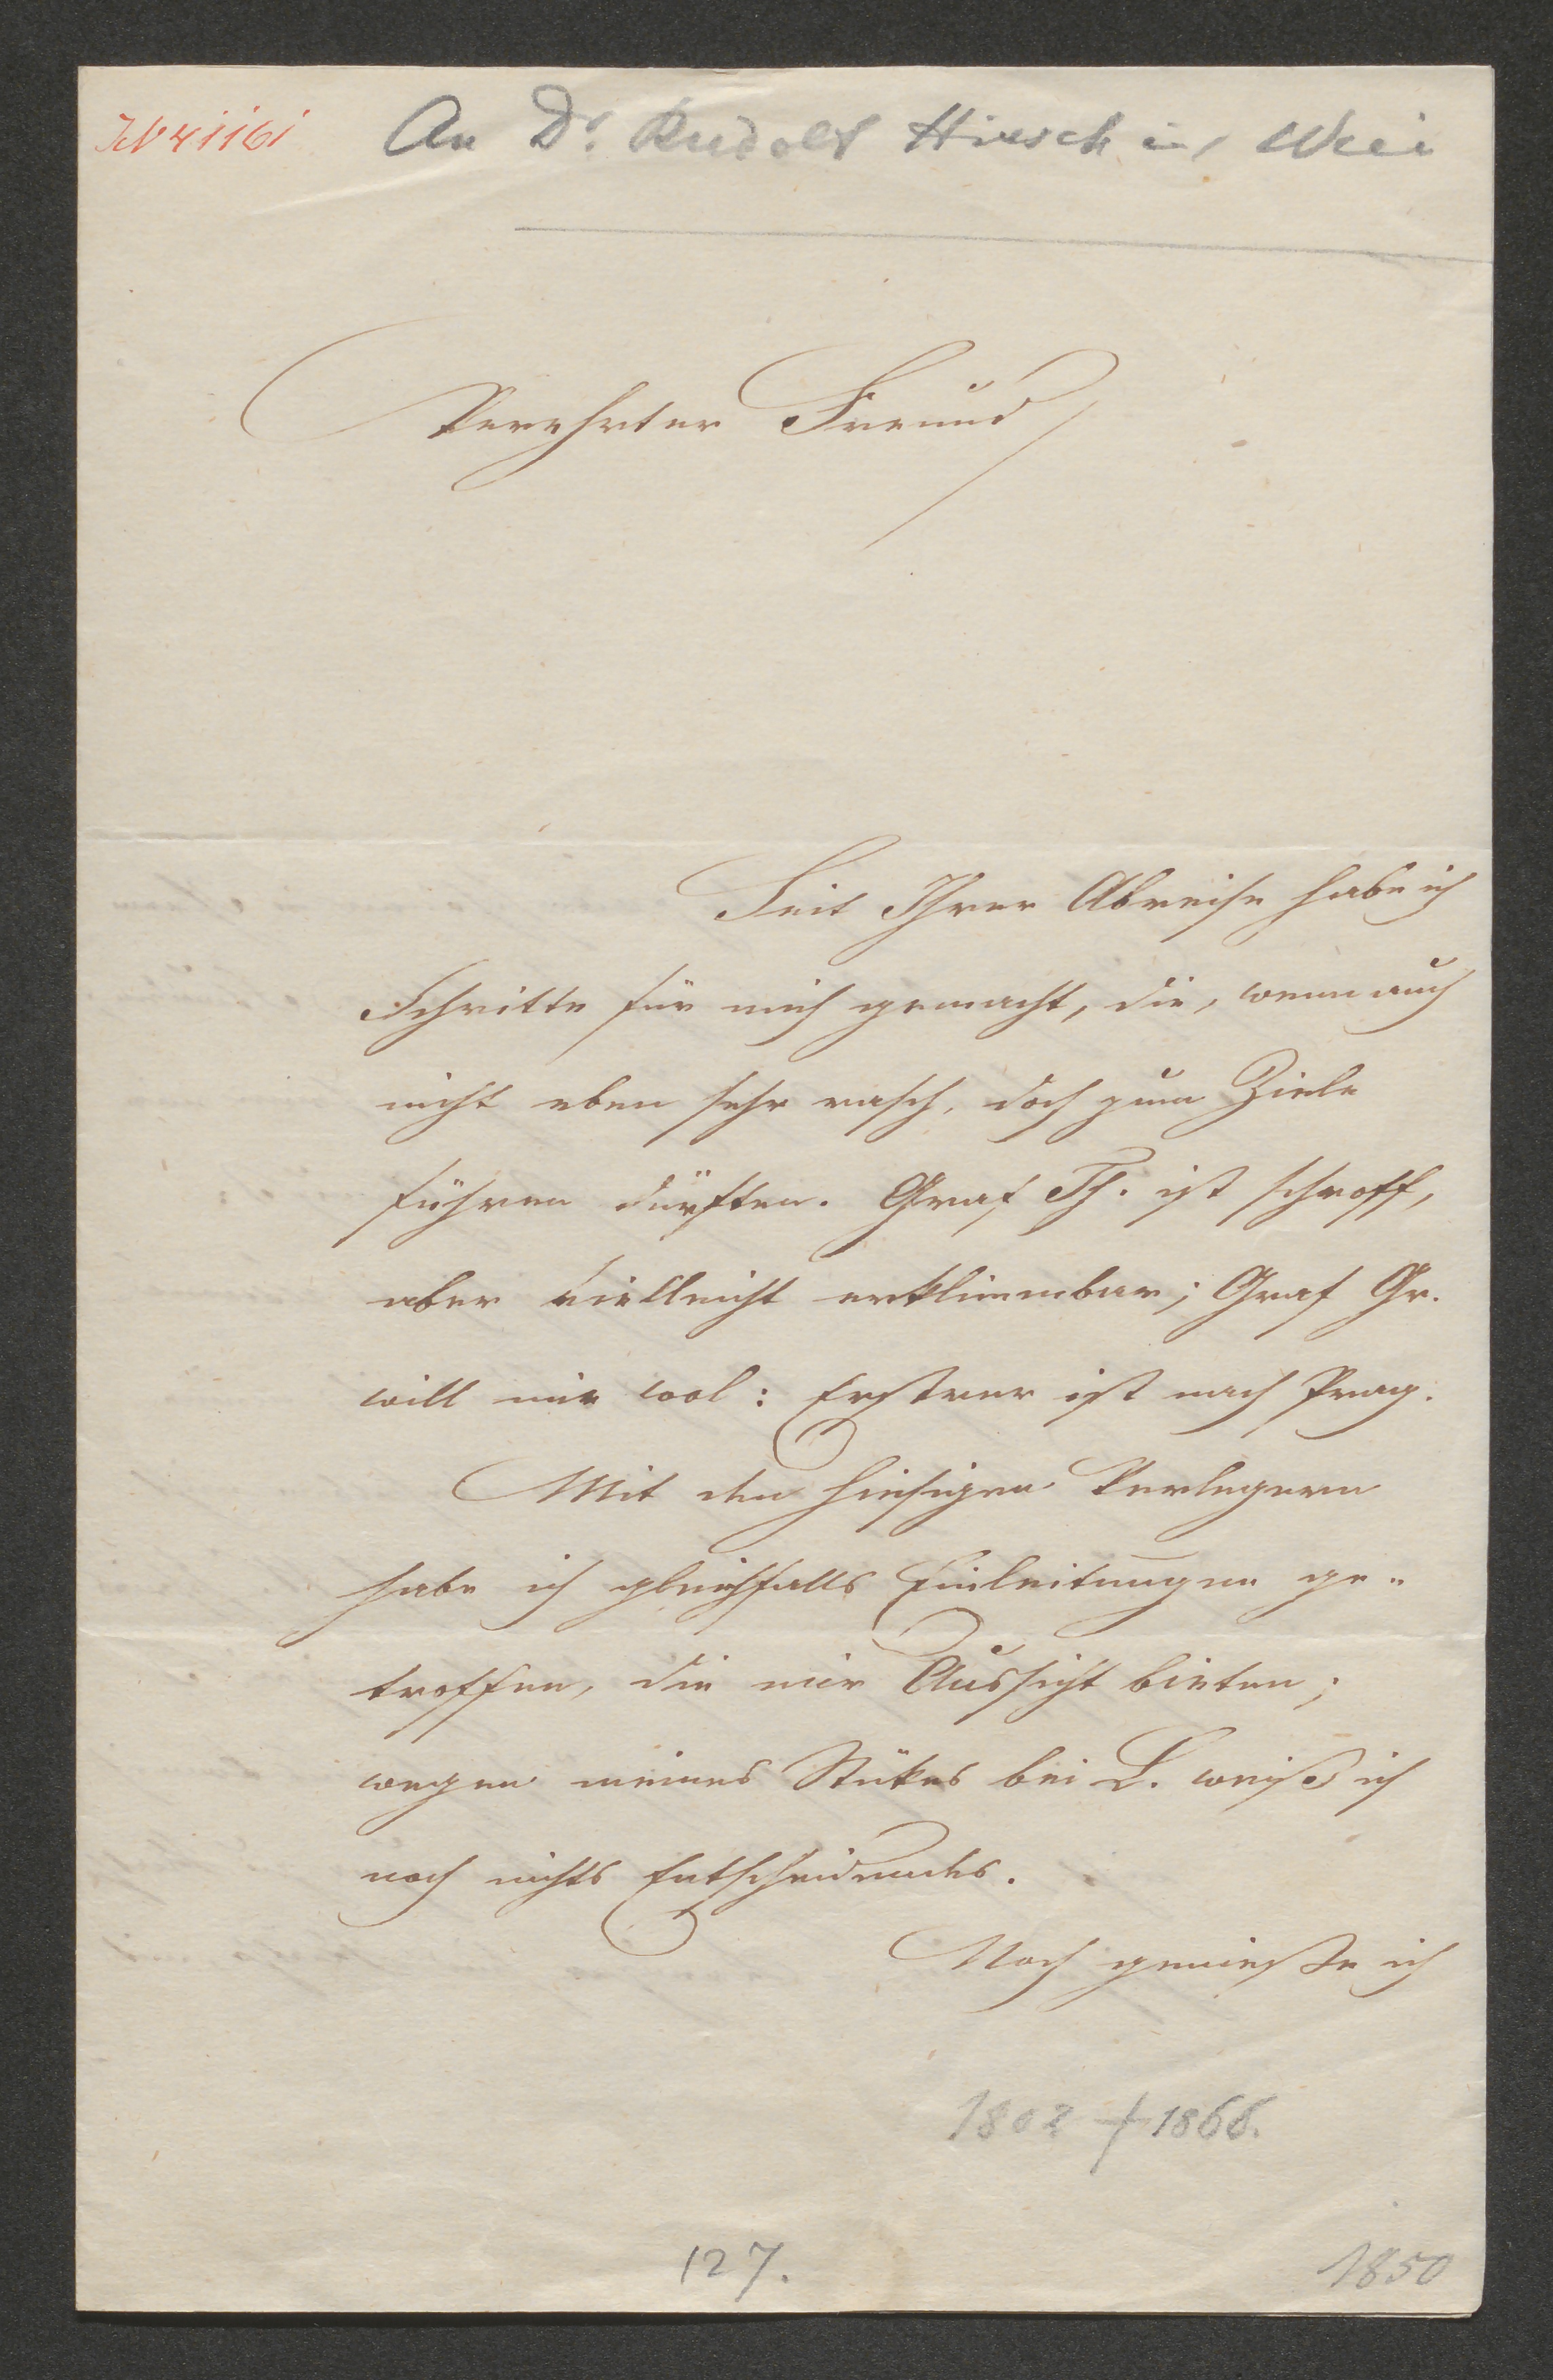 An Dr. Rudolf Hirsch in Wien
Verehrter Freund
Seit Ihrer Abreise habe ich
Schritte für mich gemacht, die, wenn auch
nicht eben sehr rasch, doch zum Ziele
führen dürften. Graf Th. ist schroff,
aber vielleicht erklimmbar; Graf Gr.
will mir wol: Erstrer ist nach Prag.
Mit den hiesigen Verlegern
habe ich gleichfalls Einleitungen ge-
troffen, die mir Aussicht bieten;
wegen meines Stükes bei L. weiß ich
noch nichts Entscheidendes.
Noch genieße ich
1802 + 1866.
127.
1850